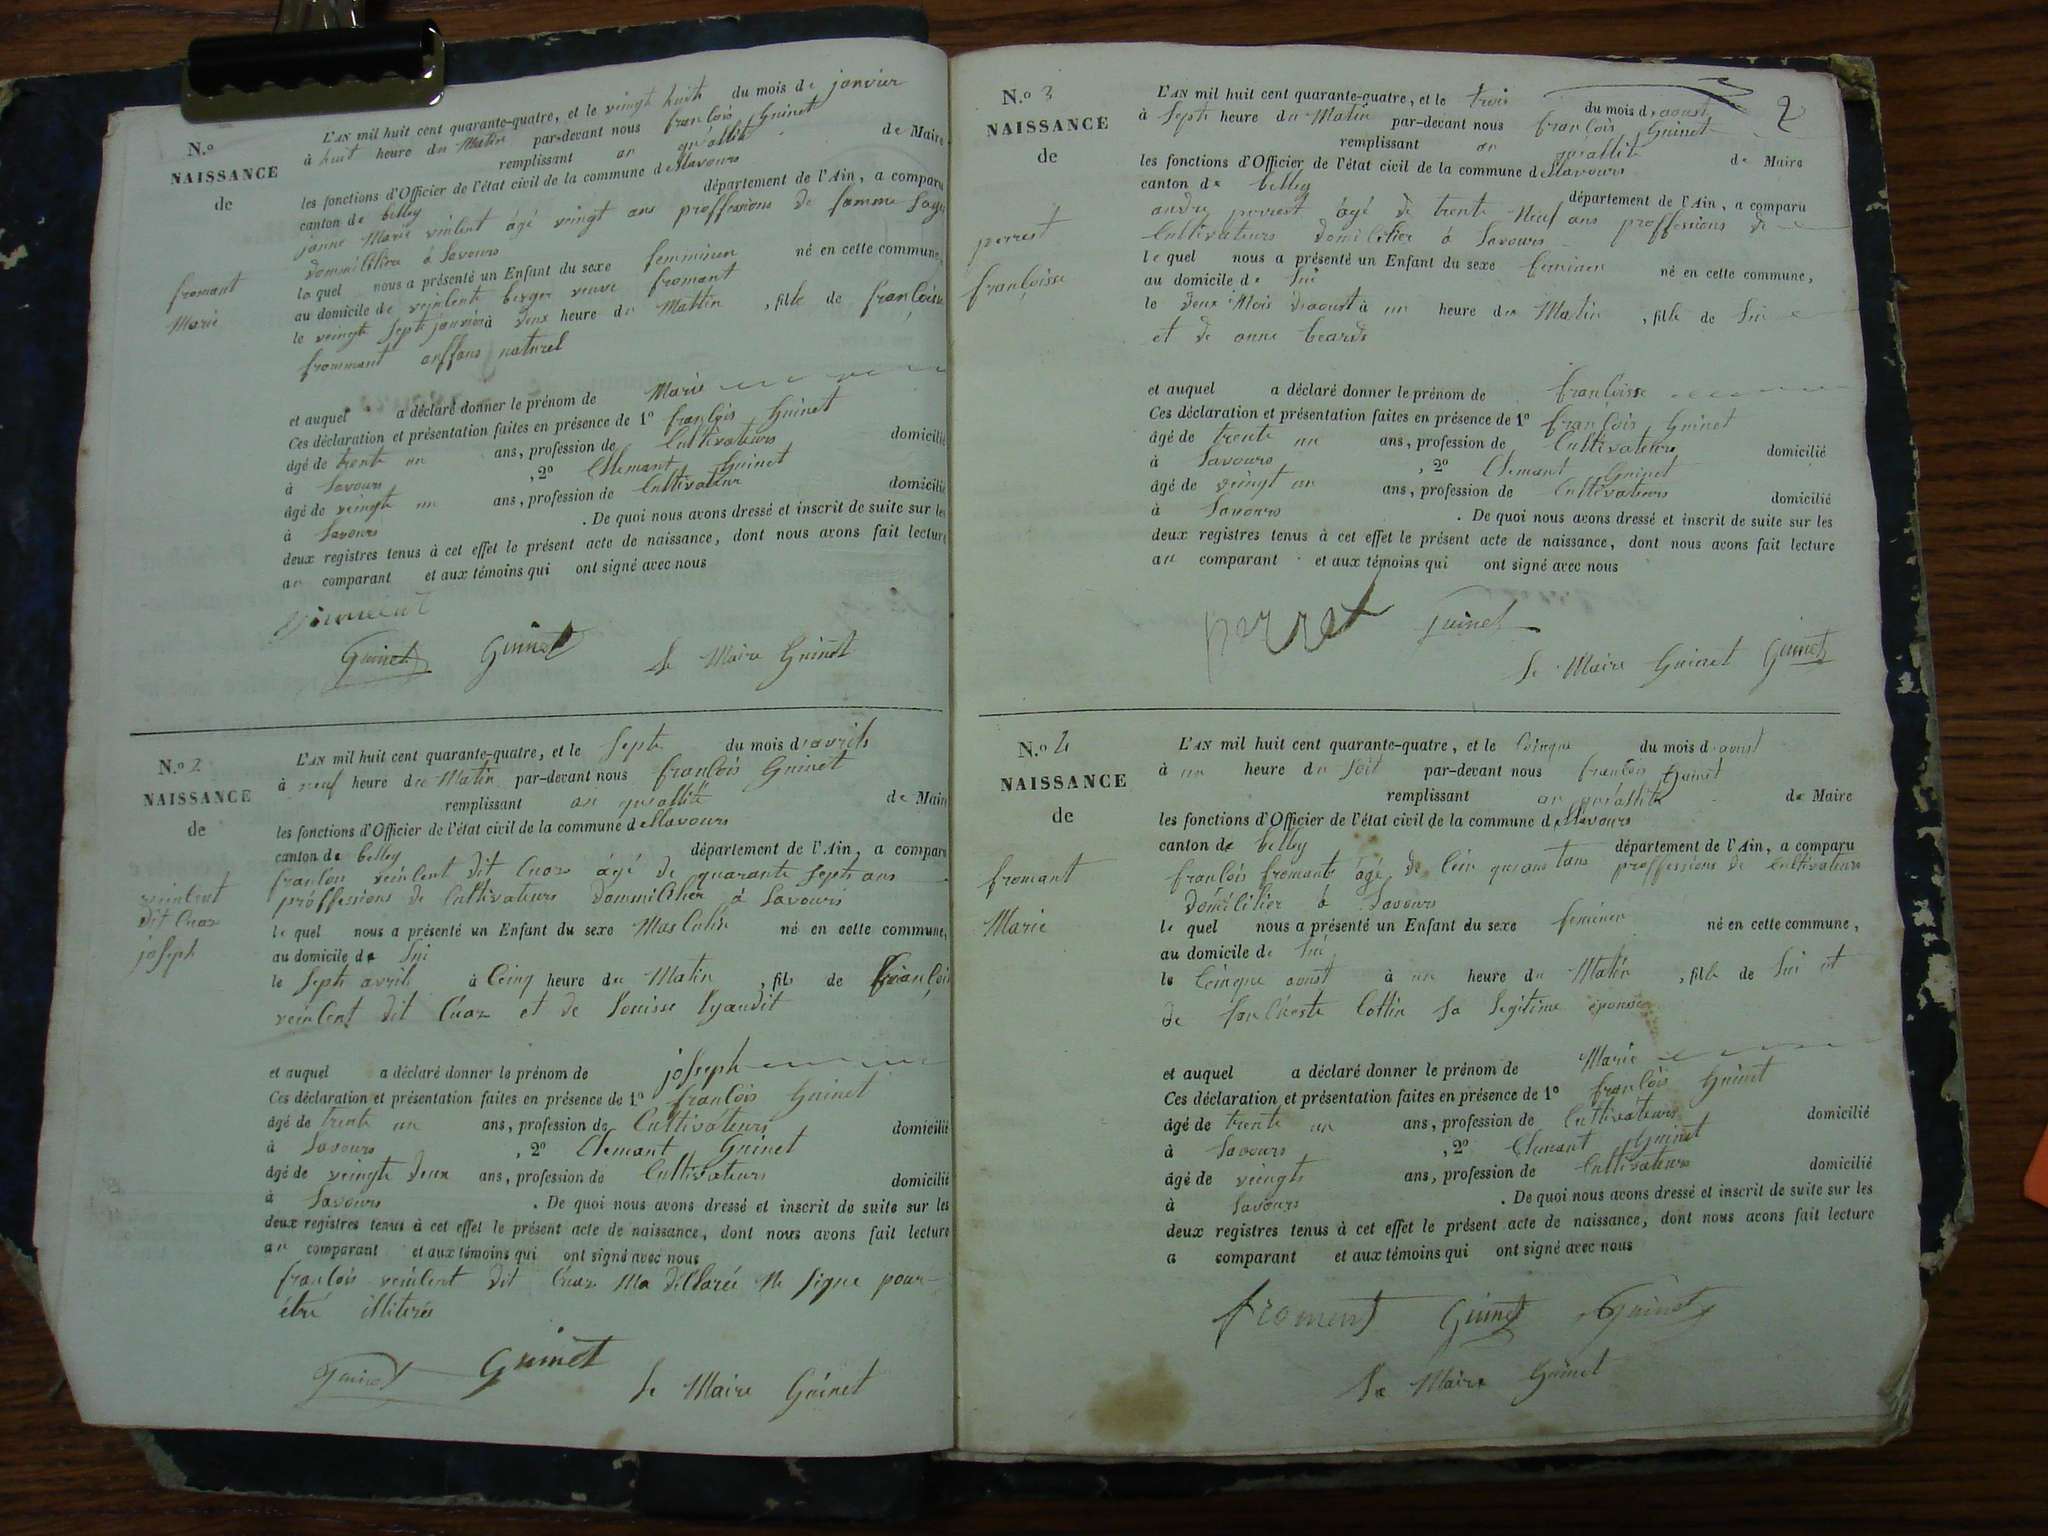 N.o
NAISSANCE
de
fromant
Marie
L'AN mil huit cent quarante-quatre, et le veingt huite du mois de janvier
à huit heure du Matin par-devant nous franlois Guinet
remplissant an quallité de Maire
les fonctions d'Officier de l'état civil de la commune de Mavours
canton de belley département de l'Ain, a comparu
janne Marie vinlent âgé veingt ans proffessions de famme Sage
dommililira à Savours
la quel nous a présenté un Enfant du sexe femminen né en cette commune,
au domicile de veinlente berger veuve fromant
le veingte septe janvier à deux heure du Mattin, fille de franloise
frommant anffans naturel
et auquel a déclaré donner le prénom de Marie
Ces déclaration et présentation faites en présence de 1º franlois Guinet
âgé de trente un ans, profession de Cultivateurs domicilié
à Savours, 2º Clemant Guinet
âgé de veingte un ans, profession de Cultivateur domicilié
à Savours. De quoi nous avons dressé et inscrit de suite sur les
deux registres tenus à cet effet le présent acte de naissance, dont nous avons fait lecture
au comparant et aux témoins qui ont signé avec nous
Guinet Guinet Le Maire Guinet
N.o 2
NAISSANCE
de
veinlent
dit Cuaz
joseph
L'AN mil huit cent quarante-quatre, et le septe du mois d'avrils
à neuf heure du Matin par-devant nous franlois Guinet
remplissant an quallité de Maire
les fonctions d'Officier de l'état civil de la commune de Mavours
canton de belley département de l'Ain, a comparu
franlois veinlent dit Cuaz âgé de quarante septe ans
proffessions de Cultivateurs dommililier à Savours
le quel nous a présenté un Enfant du sexe Maslulin né en cette commune,
au domicile de lui
le septe avril à Cinq heure du Matin, fils de françois
veinlent dit Cuaz et de Louisse
et auquel a déclaré donner le prénom de joseph
Ces déclaration et présentation faites en présence de 1º franlois Guinet
âgé de trente un ans, profession de Cultivateurs domicilié
à Savours, 2º Clemant Guinet
âgé de veingte deux ans, profession de Cultivateurs domicilié
à Savours. De quoi nous avons dressé et inscrit de suite sur les
deux registres tenus à cet effet le présent acte de naissance, dont nous avons fait lecture
au comparant et aux témoins qui ont signé avec nous
franlois veinlent dit Cuaz Ma déllarée Ne signe pour
être illiterés
Guinet Guinet Le Maire Guinet
2
N.o 3
NAISSANCE
de
perret
françoisse
L'AN mil huit cent quarante-quatre, et le trois du mois d'aoust
à Septe heure du Matin par-devant nous françois Guinet
remplissant an quallité de Maire
les fonctions d'Officier de l'état civil de la commune de Mavours
canton de belley département de l'Ain, a comparu
andre perrest âgé de trente Neuf ans proffessions de
Cultivateurs domililier à Savours
le quel nous a présenté un Enfant du sexe feminen né en cette commune,
au domicile de lui
le deux Mois d'aoust à un heure du Matin, fille de lui
et de anne
et auquel a déclaré donner le prénom de franloisse
Ces déclaration et présentation faites en présence de 1º françois Guinet
âgé de trente un ans, profession de Cultivateurs domicilié
à Savours, 2º Clemant Guinet
âgé de veingt un ans, profession de Cultivateurs domicilié
à Savours. De quoi nous avons dressé et inscrit de suite sur les
deux registres tenus à cet effet le présent acte de naissance, dont nous avons fait lecture
au comparant et aux témoins qui ont signé avec nous
perret Guinet
Le Maire Guinet Guinet
N.o 4
NAISSANCE
de
fromant
Marie
L'AN mil huit cent quarante-quatre, et le Cinque du mois d'aoust
à un heure du soit par-devant nous franlois Guinet
remplissant an quallité de Maire
les fonctions d'Officier de l'état civil de la commune de Mavours
canton de belley département de l'Ain, a comparu
franlois fromant âgé de proffessions de Cultivateur
domililier à Savours
le quel nous a présenté un Enfant du sexe feminen né en cette commune,
au domicile de lui
le Cinque aoust à un heure du Matin, fille de lui et
de Cottin sa legitime épousse
et auquel a déclaré donner le prénom de Marie
Ces déclaration et présentation faites en présence de 1º franlois Guinet
âgé de trente un ans, profession de Cultivateurs domicilié
à Savours, 2º Clemant Guinet
âgé de veingts ans, profession de Cultivateurs domicilié
à Savours. De quoi nous avons dressé et inscrit de suite sur les
deux registres tenus à cet effet le présent acte de naissance, dont nous avons fait lecture
a comparant et aux témoins qui ont signé avec nous
froment Guinet Guinet
Le Maire Guinet